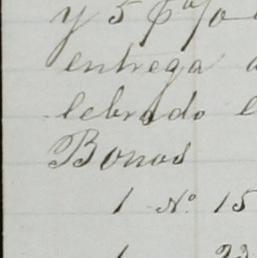 y 5 p%
entrega
lebrado
Bonos
1 Nº 15
1